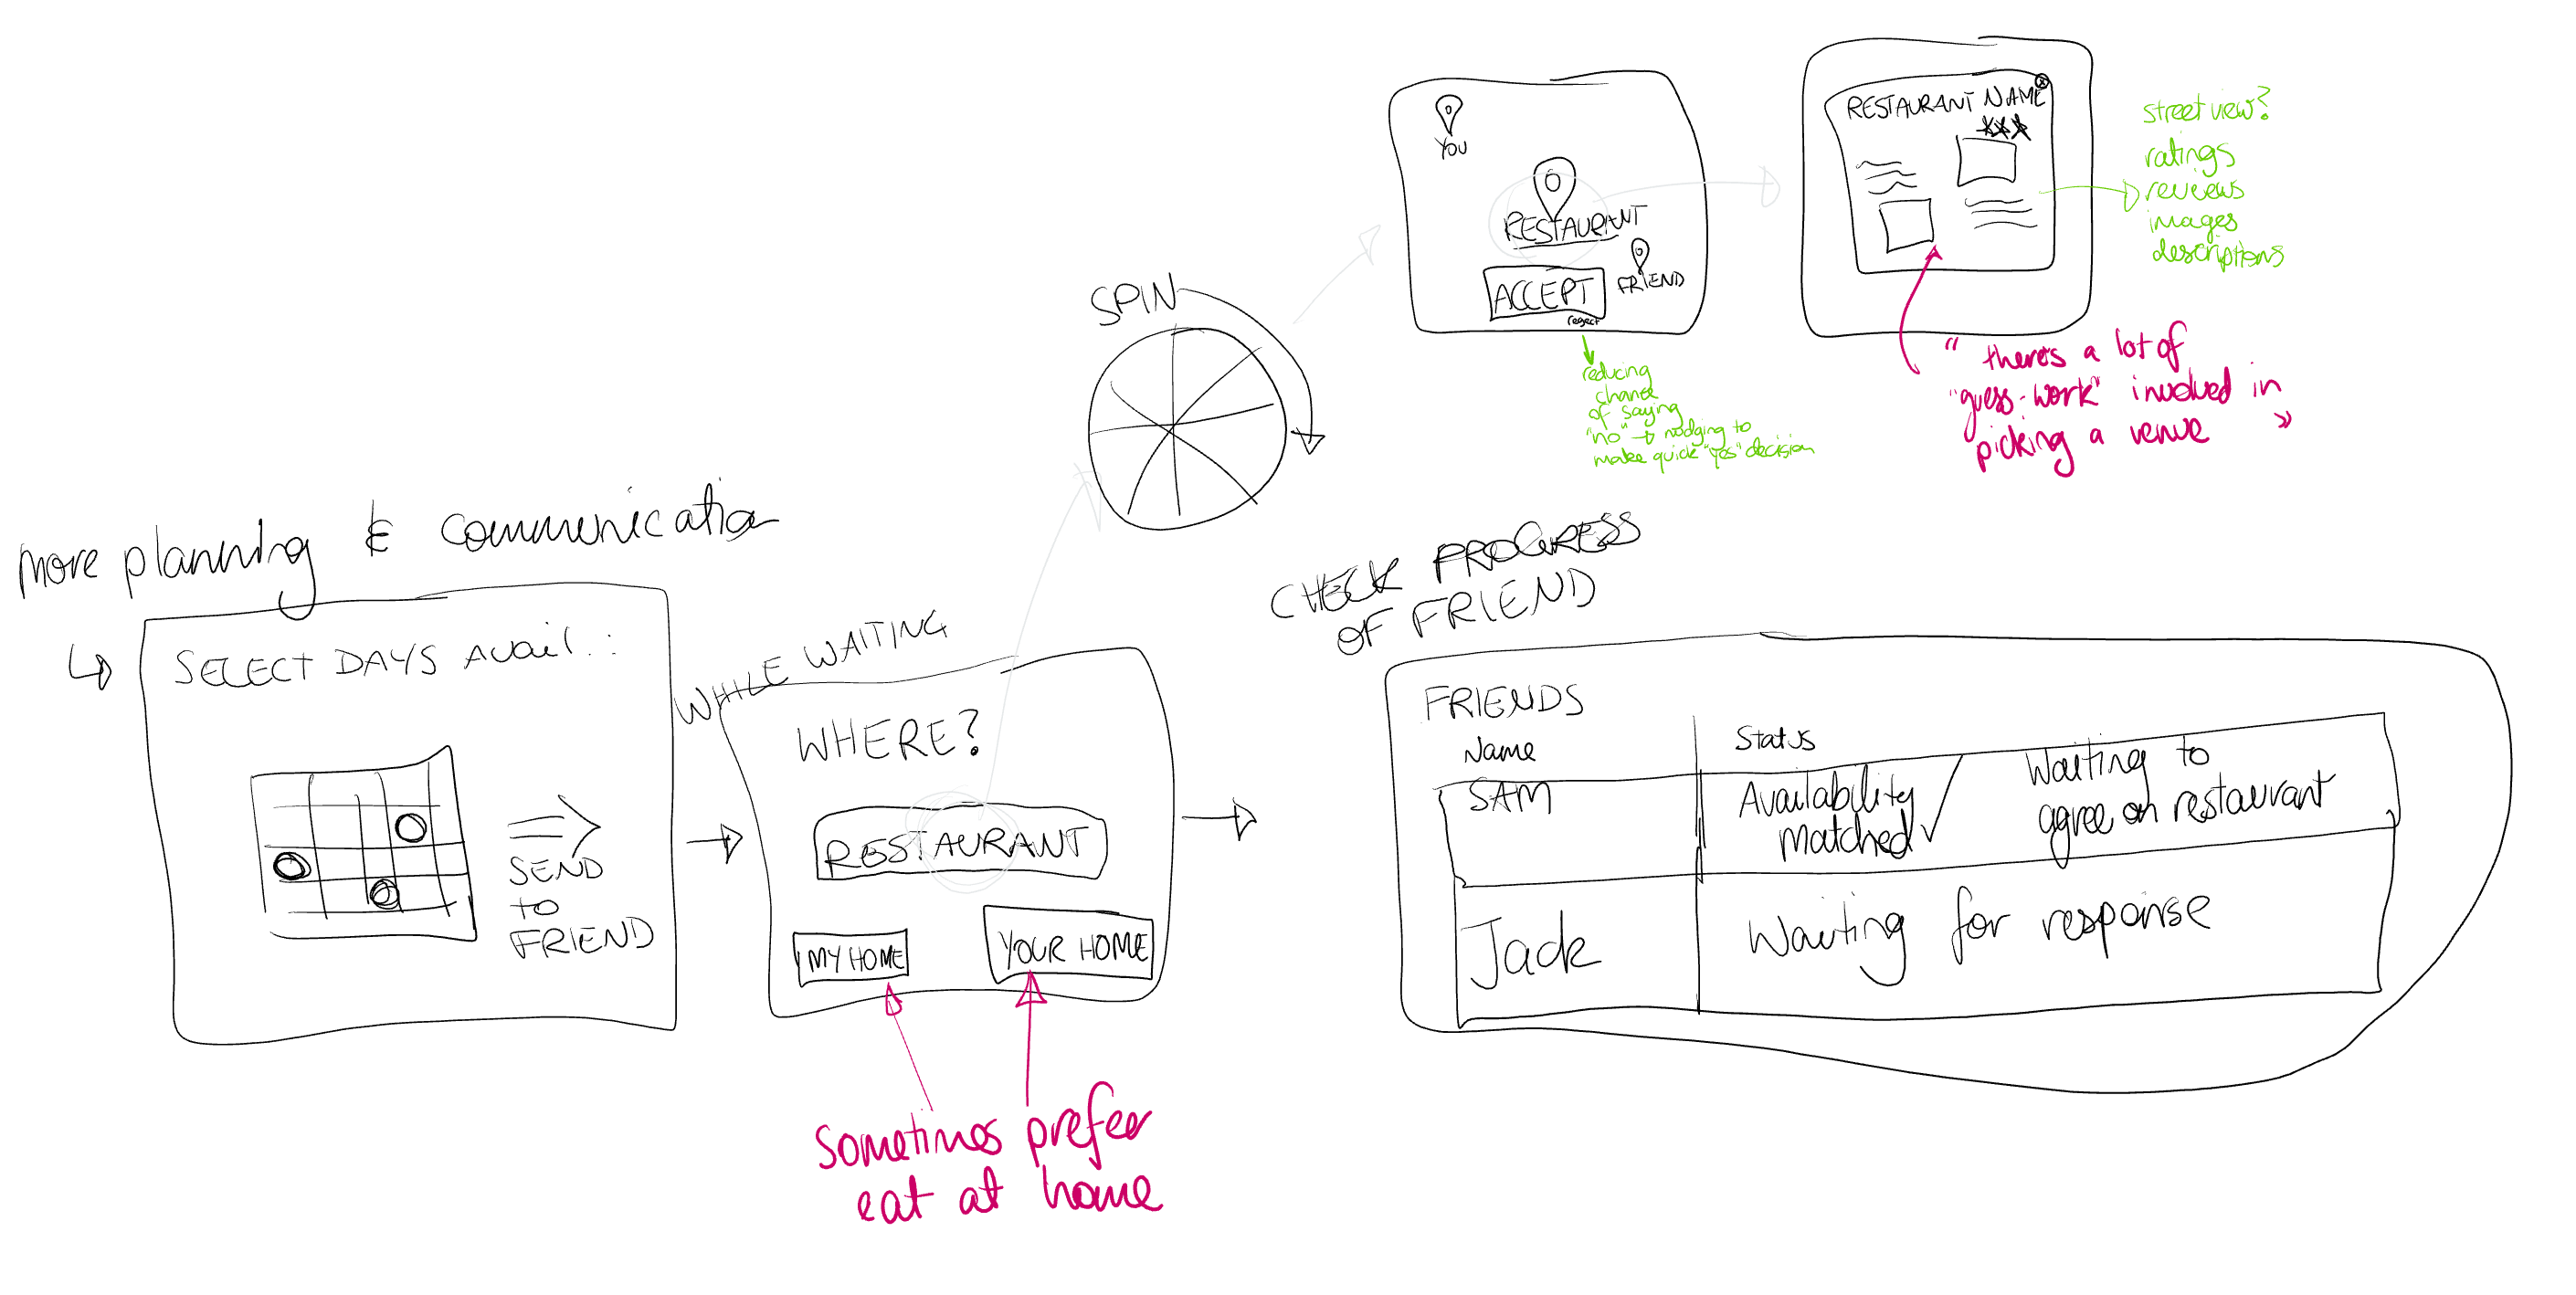 more planning & communication
SELECT DAYS Avail.:
SEND
to
FRIEND
WHILE WAITING
WHERE?
RESTAURANT
MY HOME
YOUR HOME
Sometimes prefer
eat at home
SPIN
YOU
RESTAURANT
FRIEND
ACCEPT
reject
reducing
chance
of saying
"no" → nudging to
make quick "yes" decision
RESTAURANT NAME
street view?
ratings
reviews
images
descriptions
" there's a lot of
"guess-work" involved in
picking a venue "
CHECK PROGRESS
OF FRIEND
FRIENDS
Name
Status
SAM
Availability
Matched ✓
Waiting to
agree on restaurant
Jack
Waiting for response